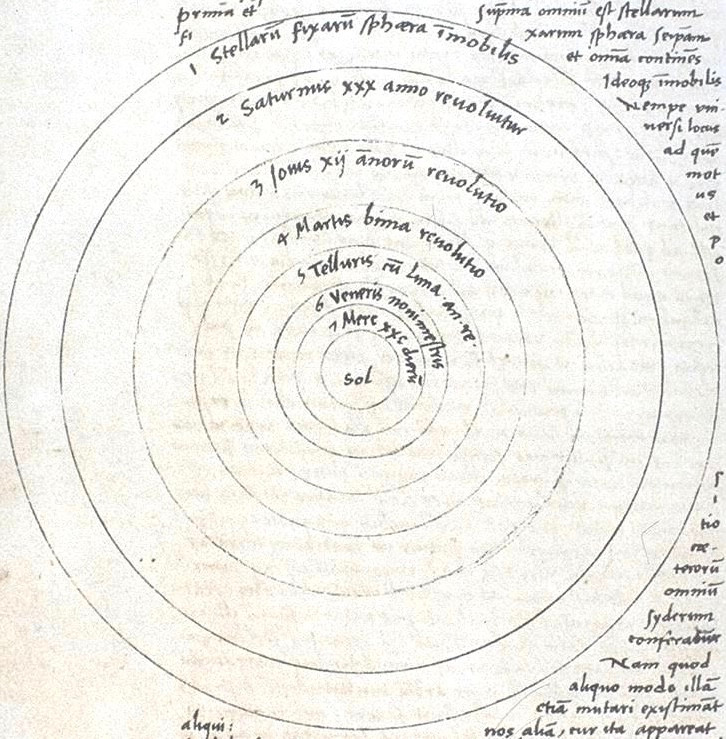 prima et
Sup̄ma omniū est stellarum
fi
xarum sphæra seipam
et omīa continēs
Ideoqȝ īmobilis
Nempe vni
uersi locus
ad quē
mot
us
et
p
o
1 Stellarū fixarū sphæra īmobilis
2 Saturnus xxx anno reuoluitur
3 Jouis xij ānorū reuolutio
4 Martis bima reuolutio
5 Telluris cū Luna an. re
6 Veneris nonimestris
7 Merc xxc dierū
Sol
s
i
tio
cæ-
terorū
omniū
syderum
conferatur
Nam quod
aliquo modo illā
etiā mutari existimāt
aliqui:
nos aliā, cur ita appareat